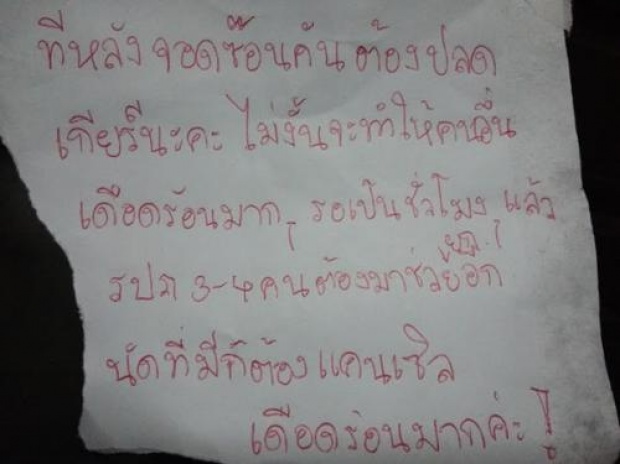 ทีหลังจอดซ๊อนคันต้องปลด
เกียร์นะคะ ไม่งั้นจะทำให้คนอื่น
เดือดร้อนมาก, รอเป็นชั่วโมง, แล้ว
รปภ 3-4 คนต้องมาช่วยอีก
นัดที่มีก็ต้องแคนเซิล
เดือดร้อนมากค่ะ !